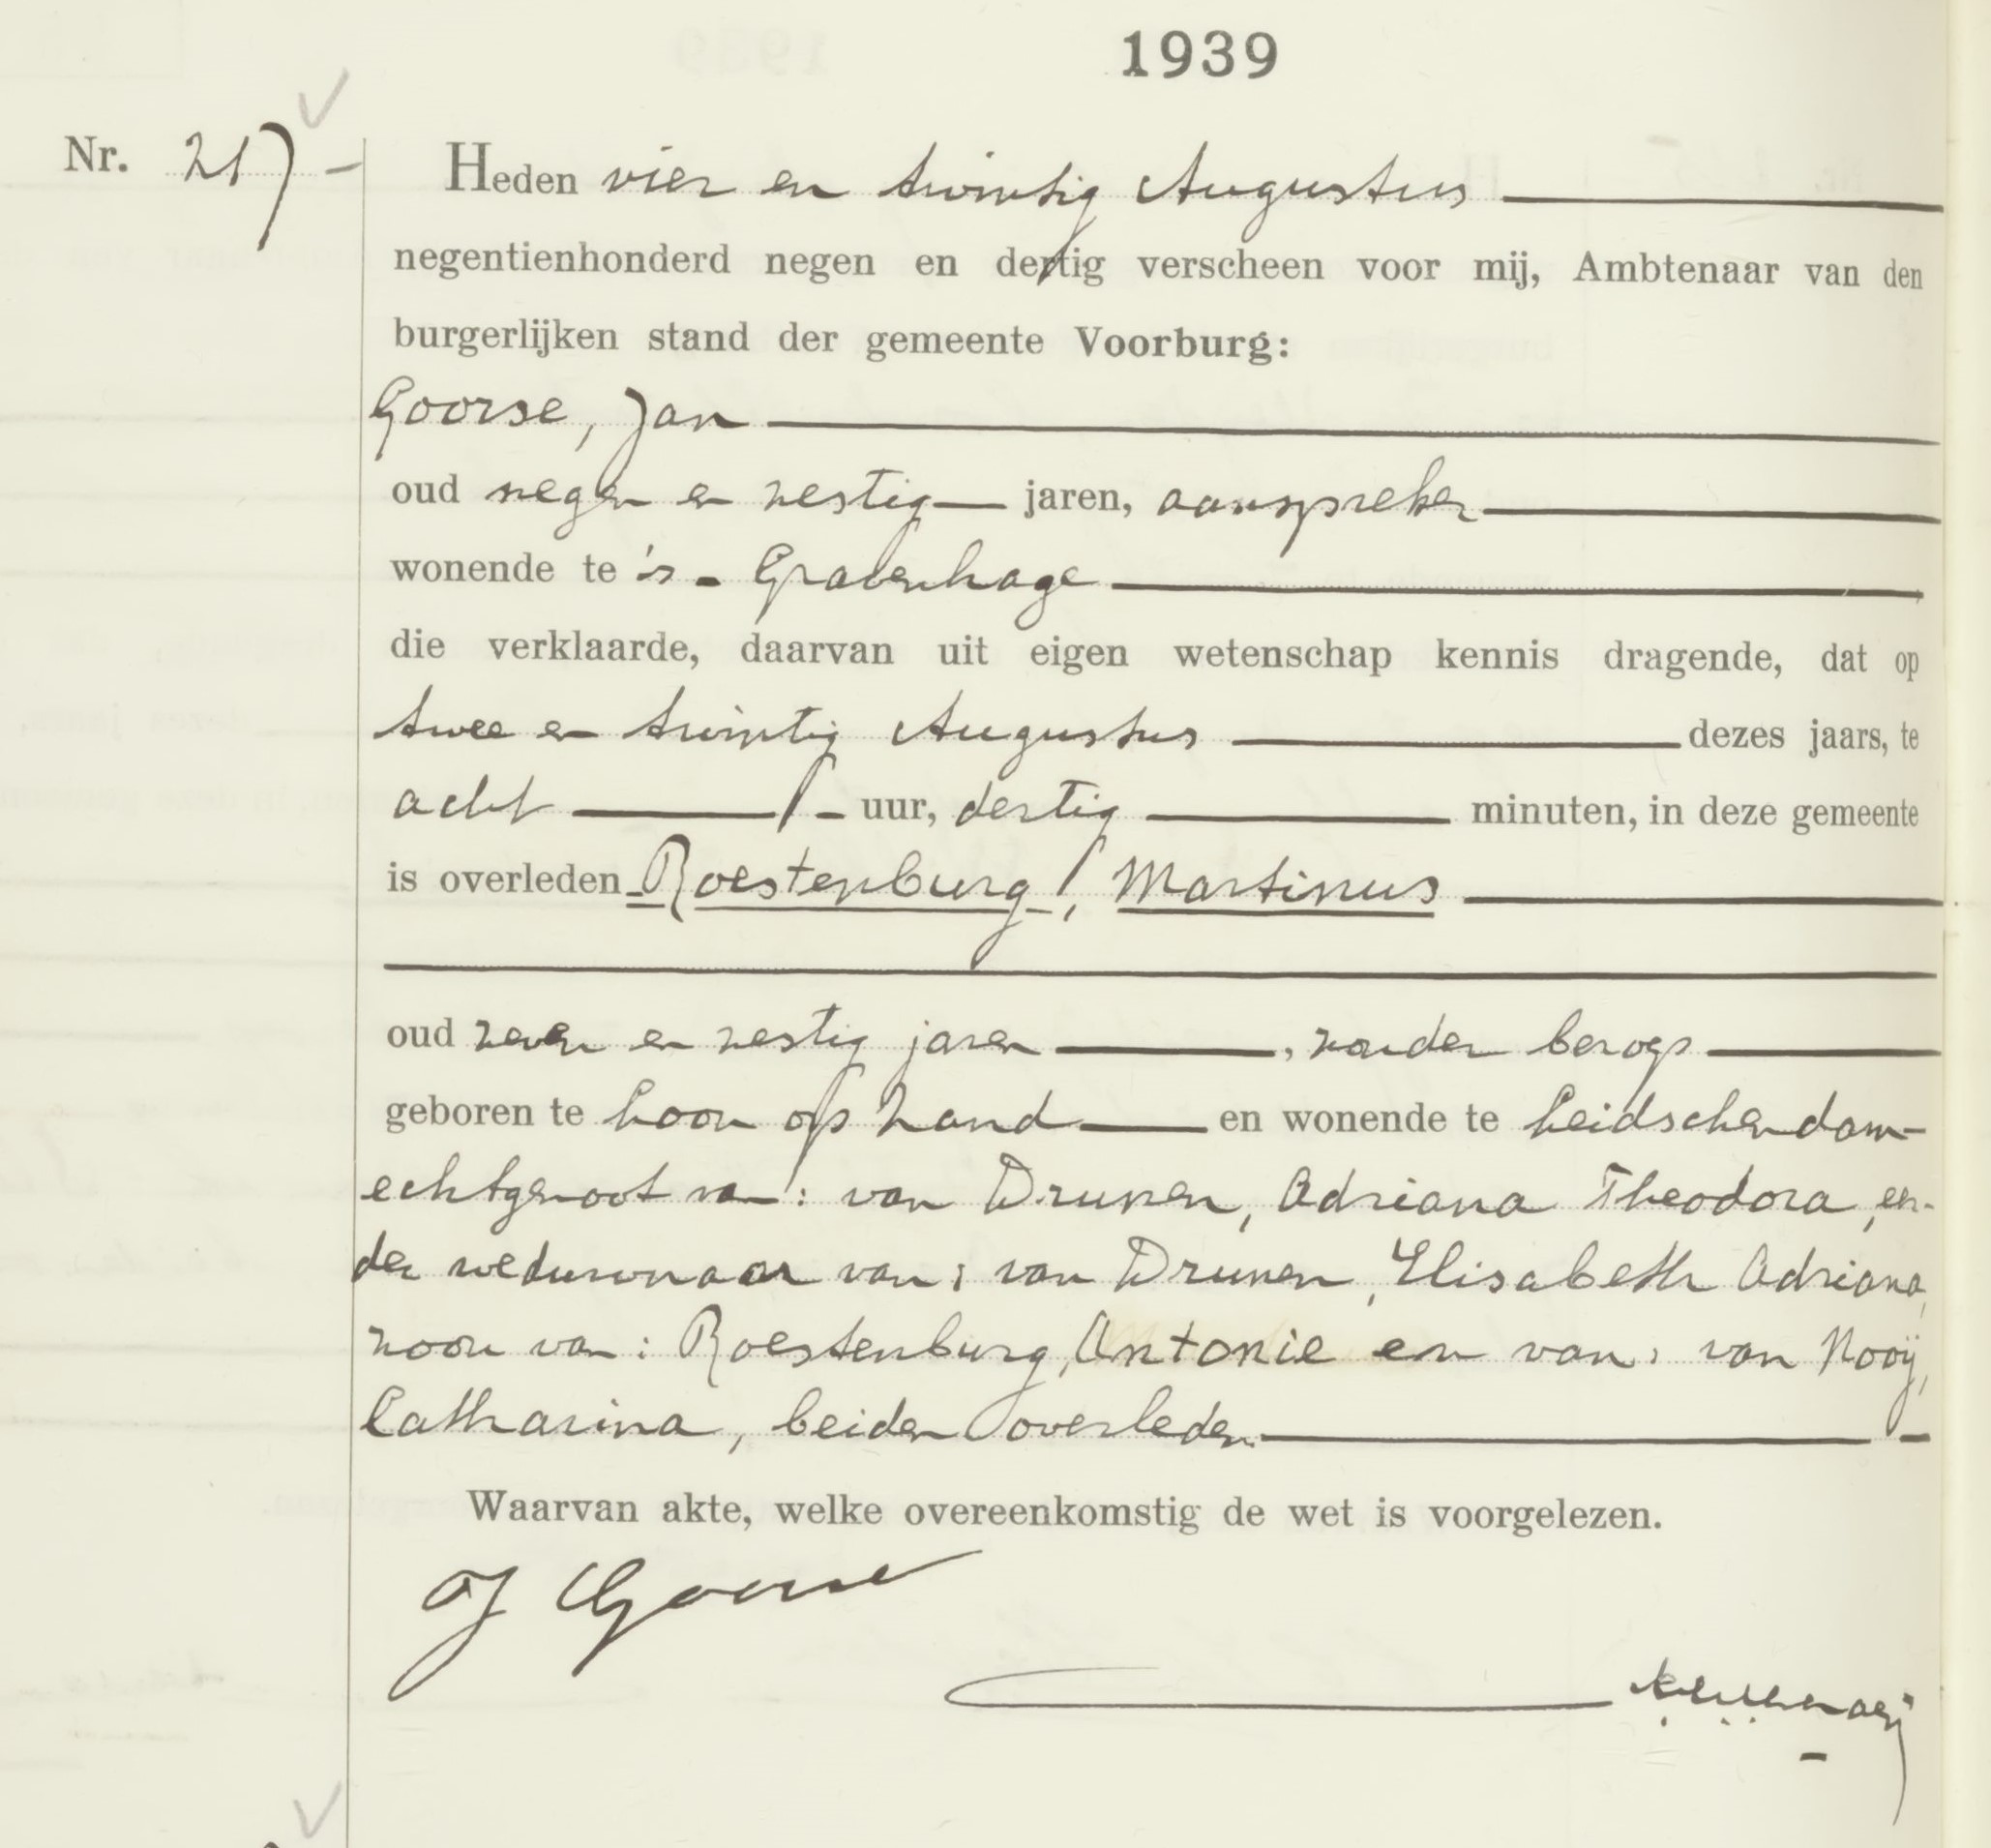 1939
Nr. 217 -
Heden vier en twintig Augustus
negentienhonderd negen en dertig verscheen voor mij, Ambtenaar van den
burgerlijken stand der gemeente Voorburg:
Goorse, Jan
oud negen en zestig jaren, aanspreker
wonende te 's-Gravenhage
die verklaarde, daarvan uit eigen wetenschap kennis dragende, dat op
twee en twintig Augustus dezes jaars, te
acht uur, dertig minuten, in deze gemeente
is overleden Roestenburg, Martinus
oud zeven en zestig jaren, zonder beroep
geboren te Loon op Zand en wonende te Leidschendam
echtgenoot van: van Drunen, Adriana Theodora, eer-
der weduwnaar van: van Drunen, Elisabeth Adriana,
zoon van: Roestenburg, Antonie en van: van Nooij,
Catharina, beiden overleden.
Waarvan akte, welke overeenkomstig de wet is voorgelezen.
J Goorse